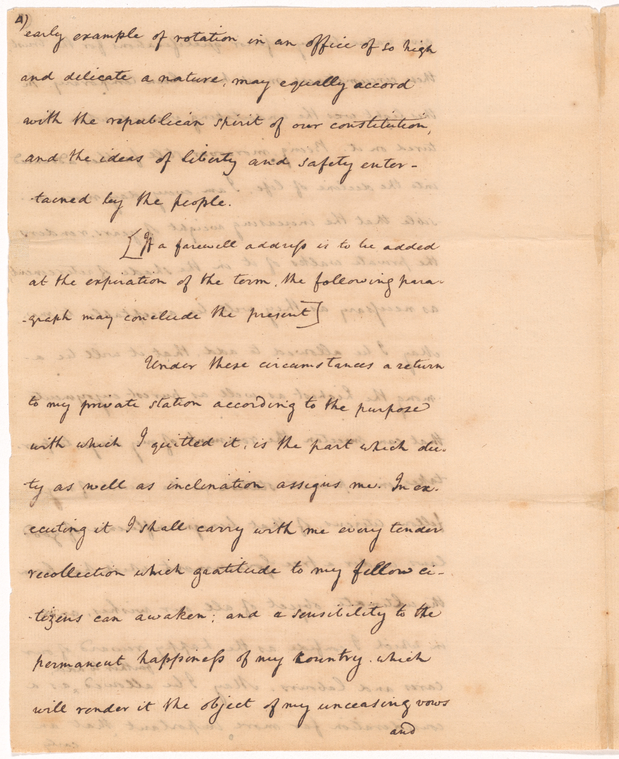 4)
early example of rotation in an office of so high
and delicate a nature, may equally accord
with the republican spirit of our constitution,
and the ideas of liberty and safety enter-
tained by the people.
[If a farewell address is to be added
at the expiration of the term, the following para-
-graph may conclude the present]
Under these circumstances a return
to my private station according to the purpose
with which I quitted it, is the part which du-
ty as well as inclination assigns me. In ex-
ecuting it I shall carry with me every tender
recollection which gratitude to my fellow ci-
-tizens can awaken; and a sensibility to the
permanent happiness of my Country, which
will render it the object of my unceasing vows
and